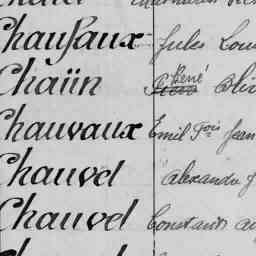 Chaussaux Jules Lou
Chaün René Oliv
Chauvaux Emil Fois Jean
Chauvel Alexandre J
Chauvel Constant au